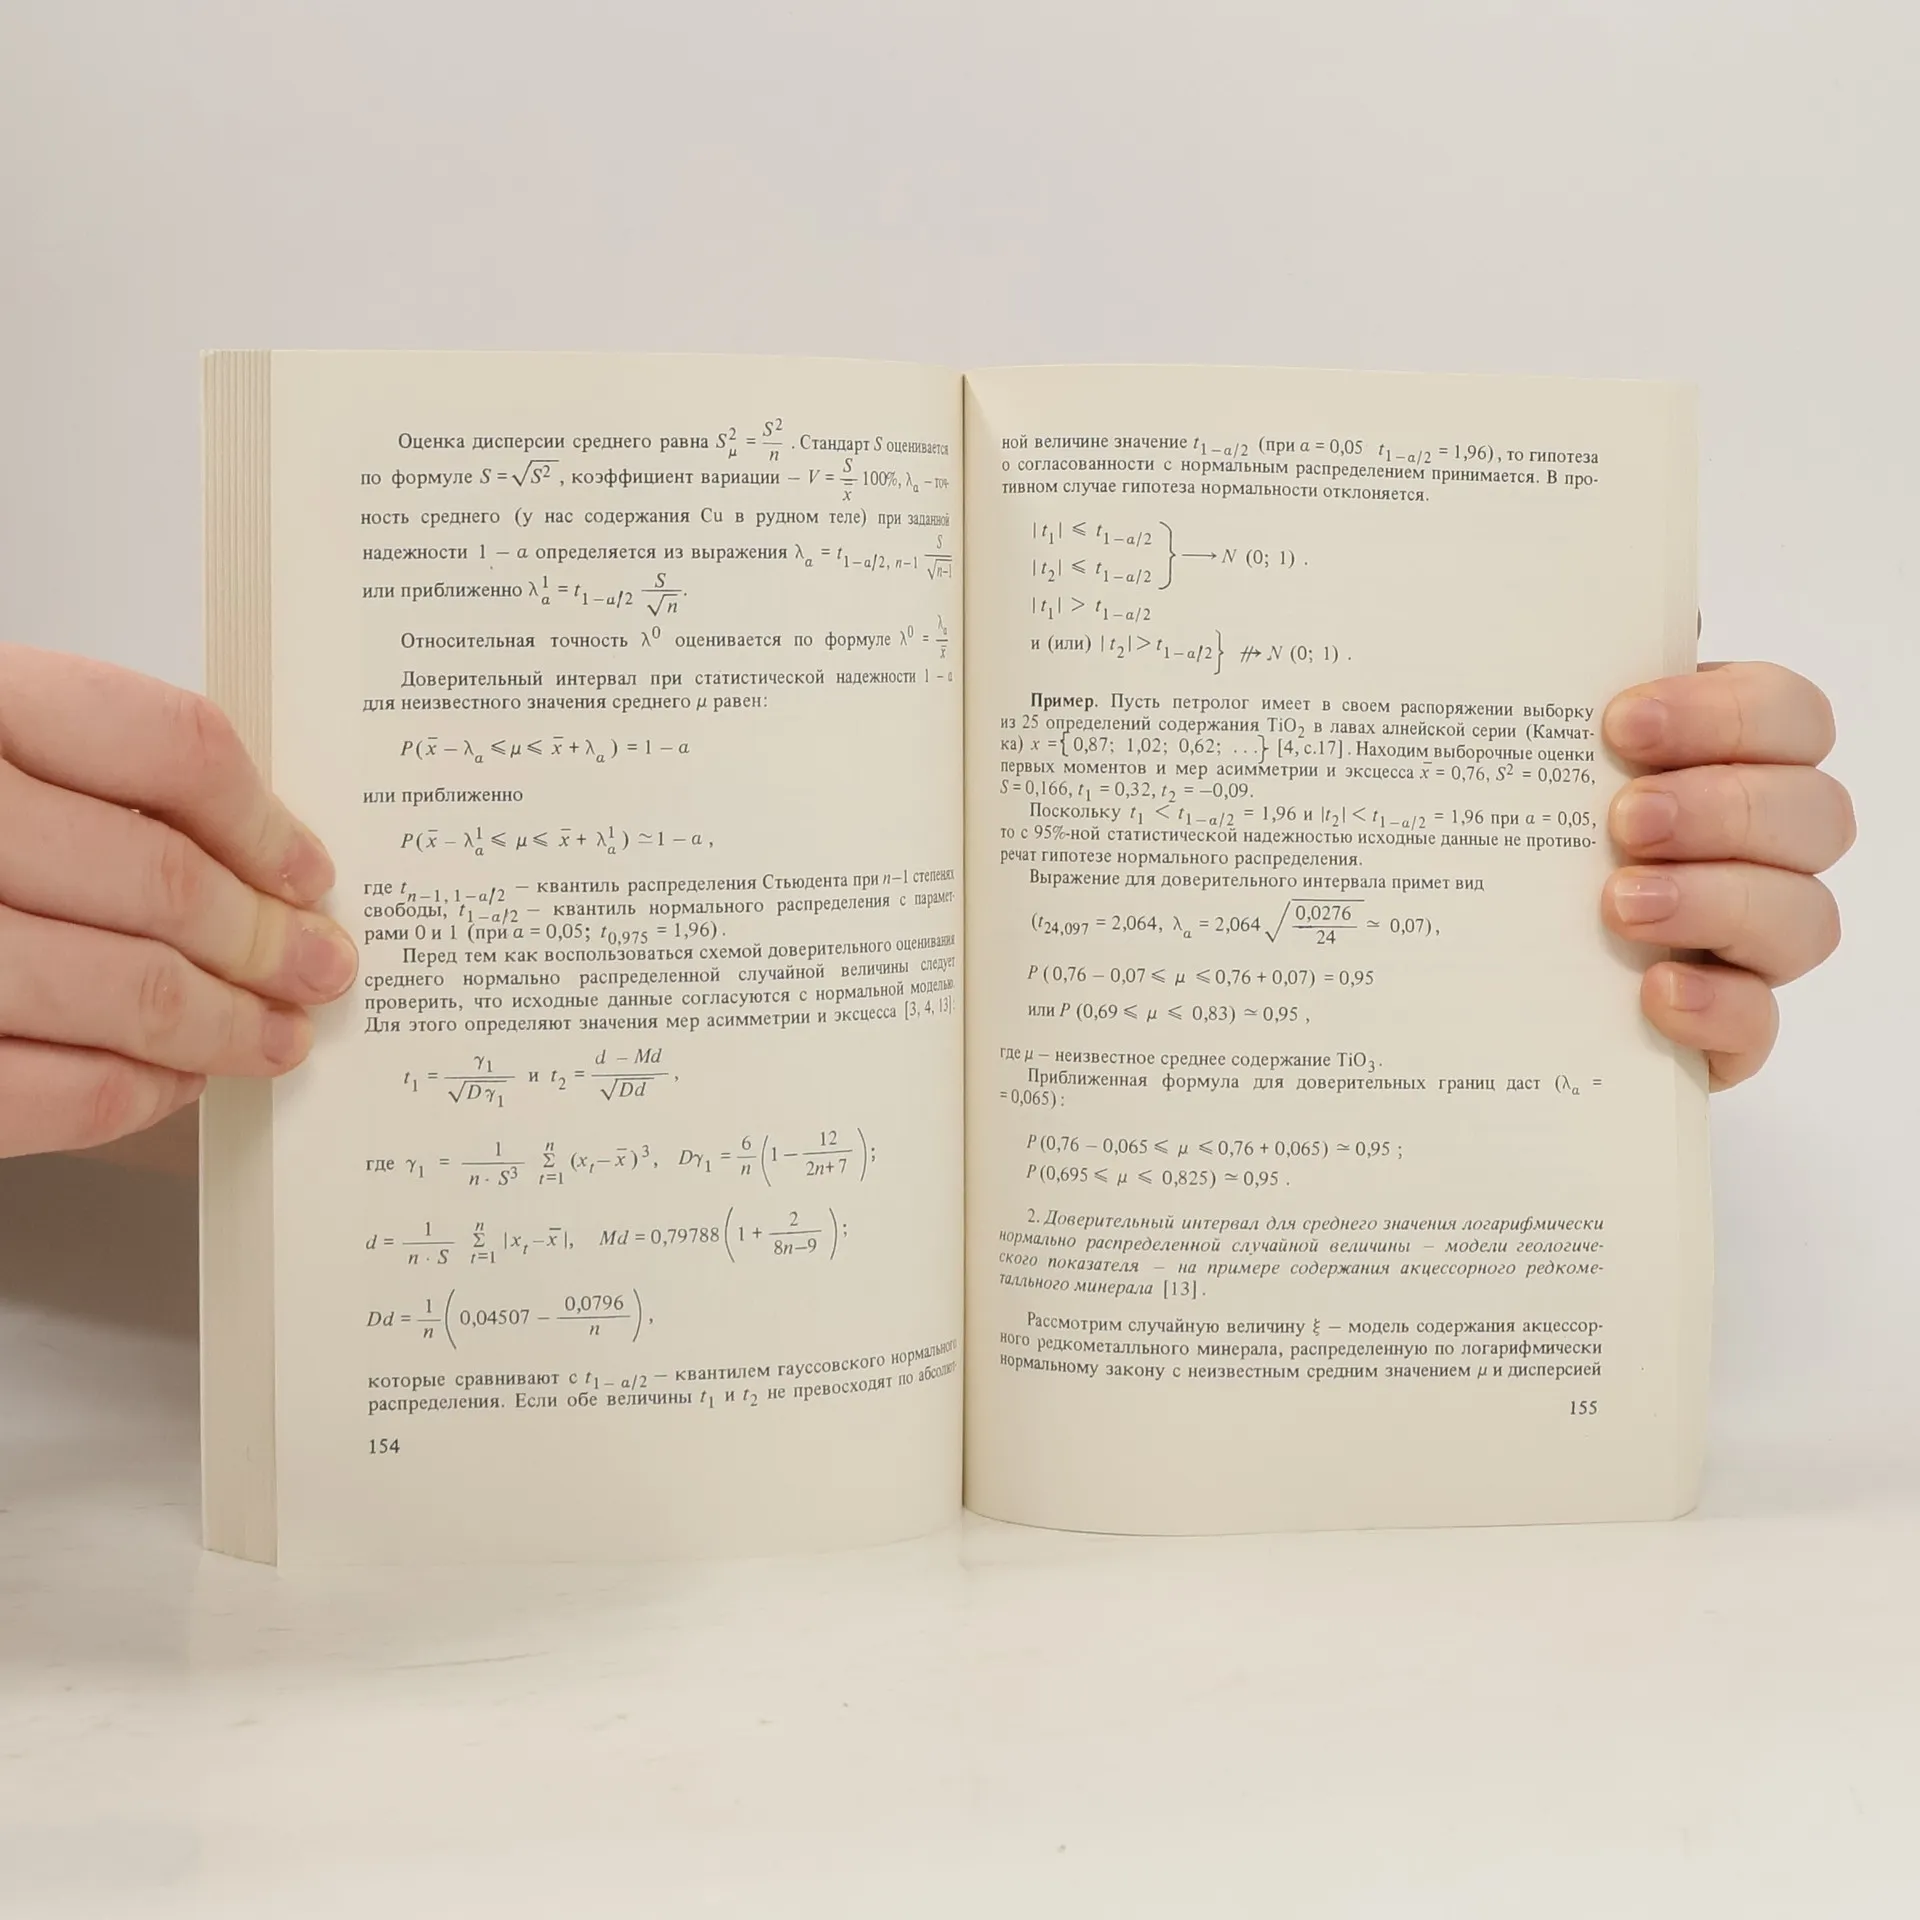 Оценка дисперсии среднего равна S²_μ = S²/n . Стандарт S оценивается
по формуле S = √S² , коэффициент вариации – V = S/x̄ 100%, λ_α – точ-
ность среднего (у нас содержания Cu в рудном теле) при заданной
надежности 1 – α определяется из выражения λ_α = t_{1–α/2, n–1} S/√(n–1)
или приближенно λ¹_α = t_{1–α/2} S/√n.
Относительная точность λ⁰ оценивается по формуле λ⁰ = λ_α/x̄
Доверительный интервал при статистической надежности 1 – α
для неизвестного значения среднего μ равен:
P(x̄ – λ_α ⩽ μ ⩽ x̄ + λ_α) = 1 – α
или приближенно
P(x̄ – λ¹_α ⩽ μ ⩽ x̄ + λ¹_α) ≃ 1 – α ,
где t_{n–1, 1–α/2} – квантиль распределения Стьюдента при n–1 степенях
свободы, t_{1–α/2} – квантиль нормального распределения с парамет-
рами 0 и 1 (при α = 0,05; t_{0,975} = 1,96) .
Перед тем как воспользоваться схемой доверительного оценивания
среднего нормально распределенной случайной величины следует
проверить, что исходные данные согласуются с нормальной моделью.
Для этого определяют значения мер асимметрии и эксцесса [3, 4, 13]:
t₁ = γ₁/√Dγ₁ и t₂ = (d – Md)/√Dd ,
где γ₁ = 1/(n · S³) Σ_{t=1}^{n} (x_t – x̄)³, Dγ₁ = 6/n (1 – 12/(2n+7));
d = 1/(n · S) Σ_{t=1}^{n} |x_t – x̄|, Md = 0,79788 (1 + 2/(8n–9));
Dd = 1/n (0,04507 – 0,0796/n),
которые сравнивают с t_{1–α/2} – квантилем гауссовского нормального
распределения. Если обе величины t₁ и t₂ не превосходят по абсолют-
154
ной величине значение t_{1–α/2} (при α = 0,05 t_{1–α/2} = 1,96) , то гипотеза
о согласованности с нормальным распределением принимается. В про-
тивном случае гипотеза нормальности отклоняется.
|t₁| ⩽ t_{1–α/2}
|t₂| ⩽ t_{1–α/2} } → N (0; 1) .
|t₁| > t_{1–α/2}
и (или) |t₂| > t_{1–α/2} } ⇸ N (0; 1) .
Пример. Пусть петролог имеет в своем распоряжении выборку
из 25 определений содержания TiO₂ в лавах алнейской серии (Камчат-
ка) x = { 0,87; 1,02; 0,62; ...} [4, с.17] . Находим выборочные оценки
первых моментов и мер асимметрии и эксцесса x̄ = 0,76, S² = 0,0276,
S = 0,166, t₁ = 0,32, t₂ = –0,09.
Поскольку t₁ < t_{1–α/2} = 1,96 и |t₂| < t_{1–α/2} = 1,96 при α = 0,05,
то с 95%-ной статистической надежностью исходные данные не противо-
речат гипотезе нормального распределения.
Выражение для доверительного интервала примет вид
(t_{24,097} = 2,064, λ_α = 2,064 √(0,0276/24) ≃ 0,07) ,
P (0,76 – 0,07 ⩽ μ ⩽ 0,76 + 0,07) = 0,95
или P (0,69 ⩽ μ ⩽ 0,83) ≃ 0,95 ,
где μ – неизвестное среднее содержание TiO₃ .
Приближенная формула для доверительных границ даст (λ_α =
= 0,065) :
P (0,76 – 0,065 ⩽ μ ⩽ 0,76 + 0,065) ≃ 0,95 ;
P (0,695 ⩽ μ ⩽ 0,825) ≃ 0,95 .
2. Доверительный интервал для среднего значения логарифмически
нормально распределенной случайной величины – модели геологиче-
ского показателя – на примере содержания акцессорного редкоме-
талльного минерала [13] .
Рассмотрим случайную величину ξ – модель содержания акцессор-
ного редкометалльного минерала, распределенную по логарифмически
нормальному закону с неизвестным средним значением μ и дисперсией
155